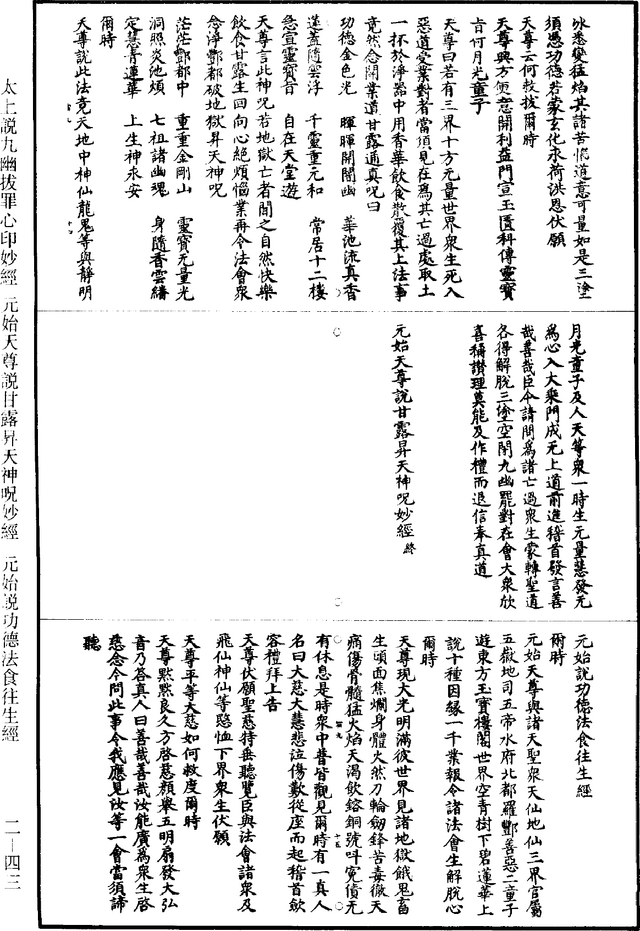 氷悉變猛焰其諸苦惱道意可量如是三塗
須憑功德若蒙玄化永荷洪恩伏願
天尊云何救拔爾時
天尊與方便意開利益門宣玉匱科傳靈寶
旨何月光童子
天尊曰若有三界十方元量世界衆生死入
惡道受業對者當頂見在爲其亡過處取土
一抔於淨器中用香華飲食散覆其上法事
竟然念開業道甘露通真呪曰
功德金色光　暉暉開闇幽　華池流真香
蓮蓋隨雲浮　千靈重元和　常居十二樓
急宣靈寶音　自在天堂遊
天尊言此神呪若地獄亡者聞之自然快樂
飲食甘露生回向心絶煩惱業再令法會衆
念淨酆都破地獄昇天神呪
茫茫酆都中　重重金剛山　靈寶元量光
洞照炎池煩　七祖諸幽魂　身隨香雲旛
定慧青蓮華　上生神永安
爾時
天尊說此法竟天地中神仙龍鬼等與靜明
月光童子及人天等衆一時生元量慧發元
爲心入大乘門成无上道前進稽首發言善
哉善哉臣今請問爲諸亡過衆生蒙轉聖道
各得解脫三塗空閑九幽罷對在會大衆欣
喜稱讚理莫能及作禮而退信奉真道
元始天尊說甘露昇天神呪妙經　終
元始說功德法食往生經
爾時
元始天尊與諸天聖衆天仙地仙三界官屬
五嶽地司五帝水府北都羅酆善惡二童子
遊東方玉寶樓閣世界空青樹下碧蓮華上
說十種因緣一千業報令諸法會生解脫心
爾時
天尊現大光明滿彼世界見諸地獄餓鬼畜
生頭面焦爛身體火然刀輪劒鋒苦毒徹天
痛傷骨髓猛火焰天渴飲鎔銅號叫冤債无
有休息是時衆中普皆觀見爾時有一真人
名曰大慈大慧悲泣傷歎從座而起稽首斂
容禮拜上告
天尊伏願聖慈特垂聽覽臣與法會諸衆及
飛仙神仙等愍恤下界衆生伏願
天尊平等大慈如何救度爾時
天尊默默良久方啓慈顏舉五明扇發大弘
音乃答真人曰善哉善哉汝能廣爲衆生啓
慈念今問此事令我應見汝等一會當須諦
聽
太上說九幽拔罪心印妙經　元始天尊說甘露昇天神呪妙經　元始說功德法食往生經
二—四三